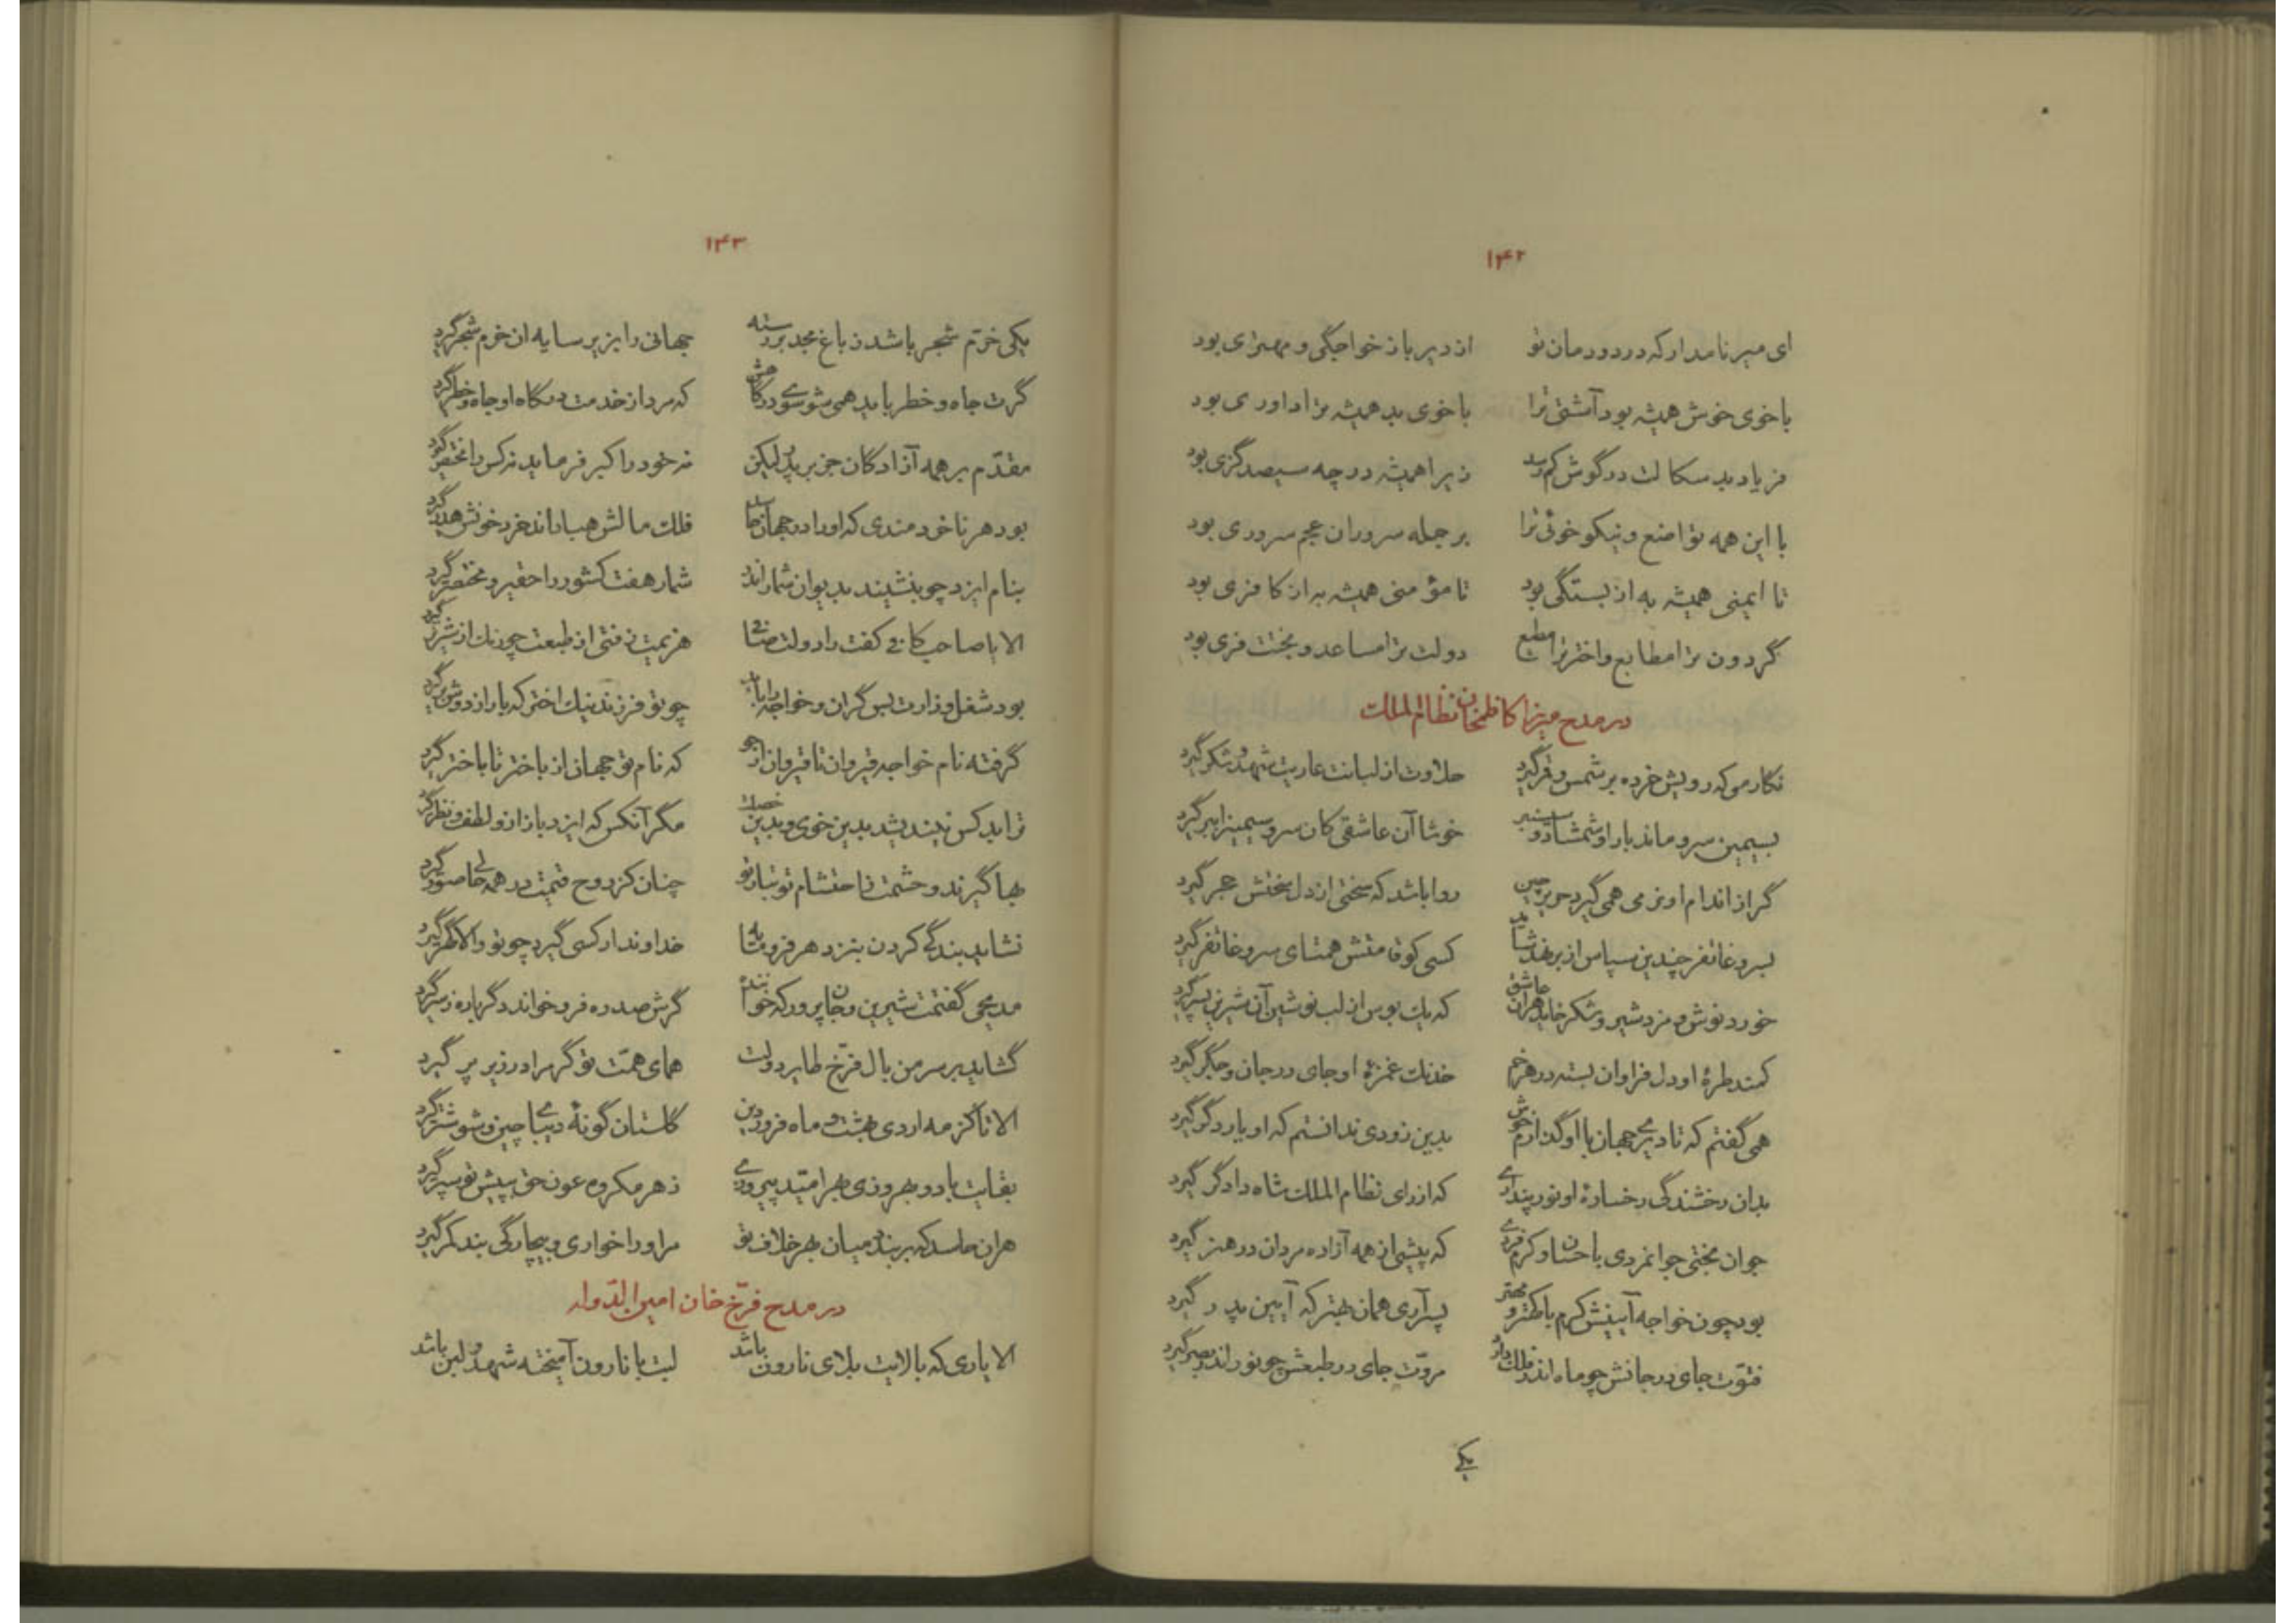 ۱۴۲
ای میر نامدار که در دودمان تو از دیر باز خواجگی و مهتری بود
با خوی خوش همیشه بود آشتی ترا با خوی بد همیشه ترا داوری بود
فریاد بد سکالت در گوش کم رسد زیرا همیشه در چه سیصد گزی بود
با این همه تواضع و نیکو خوئی ترا بر جمله سروران عجم سروری بود
تا ایمنی همیشه به از بستگی بود تا مؤمنی همیشه به از کافری بود
گردون ترا مطابع و اختر ترا مطیع دولت ترا مساعد و بختت فری بود
در مدح میرزا کاظمخان نظام الملک
نگار من که رویش خرده بر شمس و قمر گیرد حلاوت از لبانت عاریت شهد و شکر گیرد
بسیمین سرو ماند یار او شمشاد و سیسنبر خوشا آن عاشقی کان سرو سیمینرا ببر گیرد
گر از اندام او نرمی همی گیرد حریر چین روا باشد که سختی از دل سختش حجر گیرد
بسرو غاتفر چندین سپاس از بر نهد شاید کسی کو قامتش همتای سرو غاتفر گیرد
خورد نوش و مزد شیر و شکر خاید هران عاشق که یک بوس از لب نوشین آن شیرین پسر گیرد
کمند طرهٔ او دل فراوان بسته در هر خم خدنگ غمزهٔ او جای در جان و جگر گیرد
همی گفتم که تا دیری جهان با او گذارم خوش بدین زودی ندانستم که او یار دگر گیرد
بدان رخشندگی رخسارهٔ او نور پنداری که از رای نظام الملک شاه دادگر گیرد
جوان بختی جوانمردی با حسان و کرم فردی که پیشی از همه آزاده مردان در هنر گیرد
بود چون خواجه آیینش کرم با کهتر و مهتر پسر آری همان بهتر که آیین پدر گیرد
فتوّت جای در جانش چو ماه اندر فلک دارد مروّت جای در طبعش چو نور اندر بصر گیرد
یکی
۱۴۳
یکی خرّم شجر باشد ز باغ مجد بر رسته جهانی را بزیر سایه ان خرم شجر گیرد
گرت جاه و خطر باید همی شو سوی درگاهش که مرد از خدمت درگاه او جاه و خطر گیرد
مقدّم بر همه آزادگان جز بر پدر لیکن نه خود را کبر فرماید نه کس را مختصر گیرد
بود هر ناخردمندی که او را در جهان حاسد فلک مالش هبا داند خرد خونش هدر گیرد
بنام ایزد چو بنشیند بدیوان شمار اندر شمار هفت کشور را حقیر و مختصر گیرد
الا یا صاحب کافی کفت را دولت صافی هزیمت زفتی از طبعت چو زنگ از شیر نر گیرد
بود شغل وزارت بس گران و خواجه را باید چو تو فرزند نیک اختر که بار از دوش بر گیرد
گرفته نام خواجه قیروان تا قیروان از جو که نام تو جهان از باختر تا باختر گیرد
ترا بد کس نیندیشد بدین خوی و بدین خصلت مگر آنکس که ایزد باز ازو لطف و نظر گیرد
بها گیرند و حشمت تا حتشام تو تبار تو چنان کز روح قیمت در همه جا صورت گیرد
نشاید بندگی کردن بنزد هر فرومایه خداوند ار کسی گیرد چو تو والا گهر گیرد
مدیحی گفتمت شیرین و جان پرور که خواننده گرش صد ره فرو خواند دگر باره ز سر گیرد
گشاید بر سر من بال فرّخ طایر دولت همای همّت تو گر مرا در زیر پر گیرد
الا تا کز مه اردی بهشت و ماه فروردین گلستان گونهٔ دیبای چین و شوشتر گیرد
بقایت باد و بهروزی بهر امّید پیروزی ز هر مکروه عون حق به پیش تو سپر گیرد
هران حاسد که بر بندد میان بهر خلاف تو مر او را خواری و بیچارگی بند کمر گیرد
در مدح فرّخ خان امین الدّوله
الا یاری که بالایت بلای نارون باشد لبت با نارون آمیخته شهد و لبن باشد